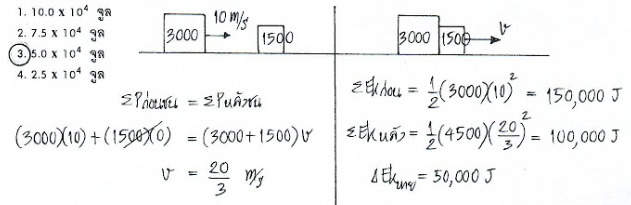 1. 10.0 x 10⁴ จูล
2. 7.5 x 10⁴ จูล
3. 5.0 x 10⁴ จูล
4. 2.5 x 10⁴ จูล
3000 10 m/s 1500
3000 1500 v
ΣPก่อนชน = ΣPหลังชน
(3000)(10) + (1500)(0) = (3000+1500)v
v = 20/3 m/s
ΣEkก่อน = 1/2(3000)(10)² = 150,000 J
ΣEkหลัง = 1/2(4500)(20/3)² = 100,000 J
ΔEkหาย = 50,000 J